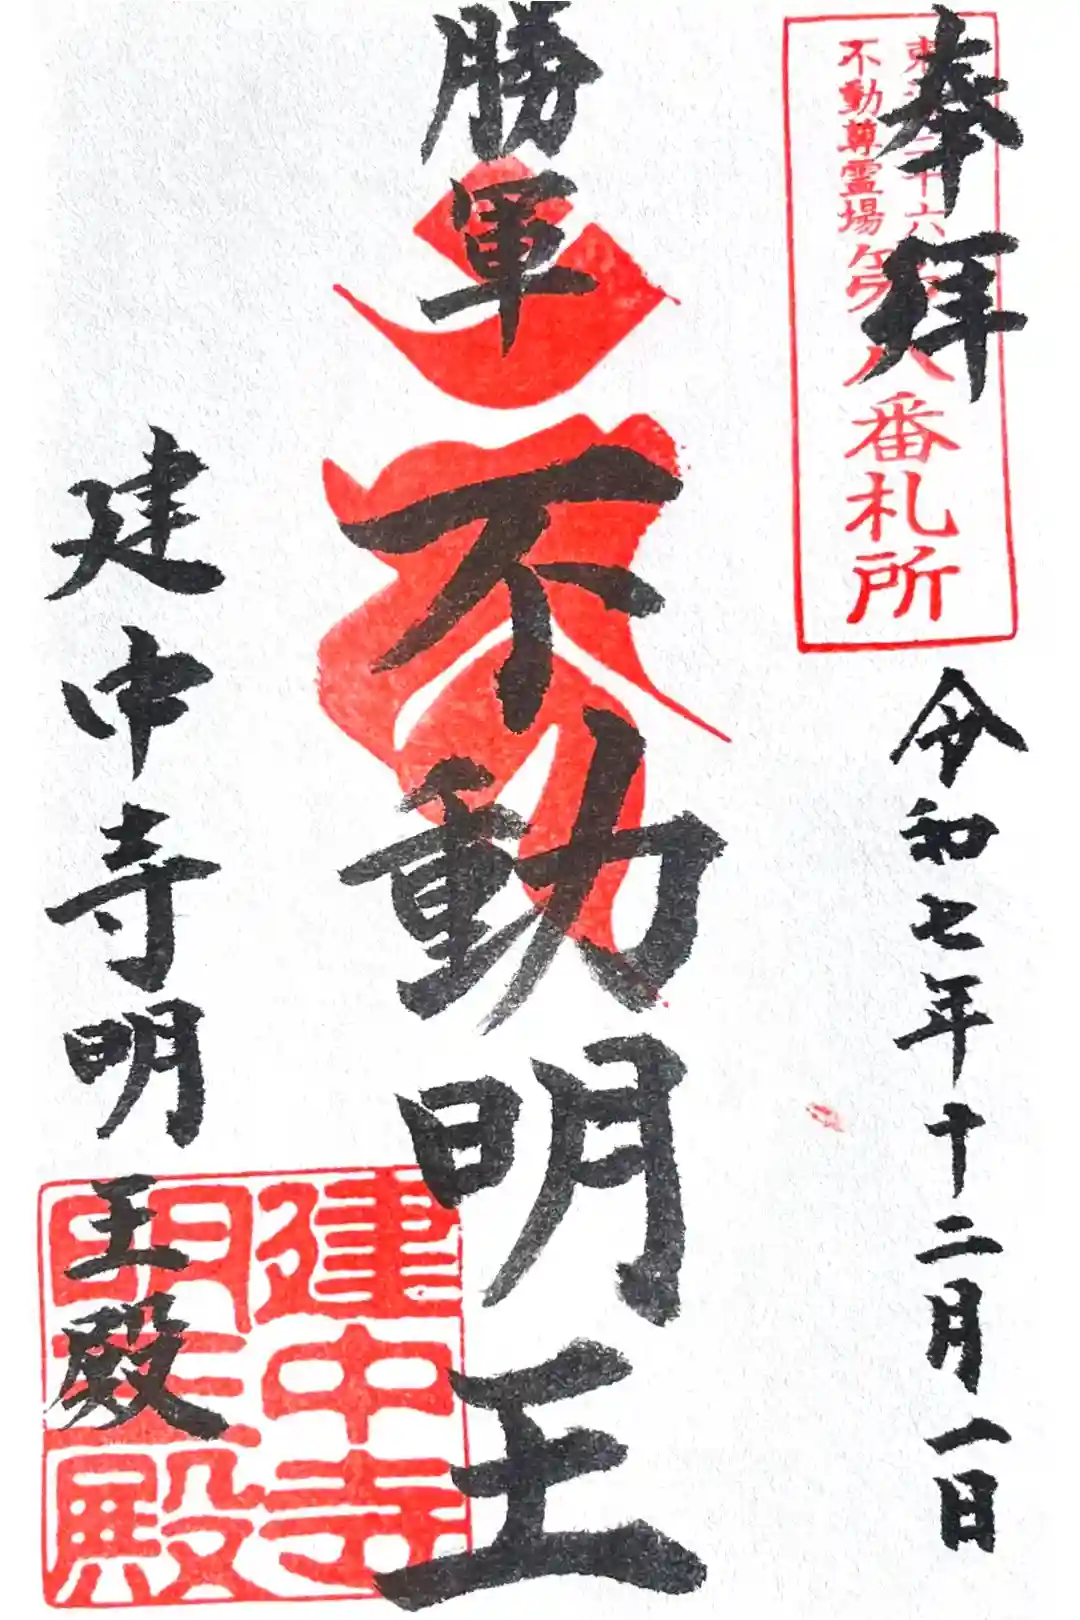 奉拝
東海三十六
不動尊霊場
第八番札所
令和七年十二月一日
勝軍
不動明王
建中寺明王殿
建中寺
明王殿